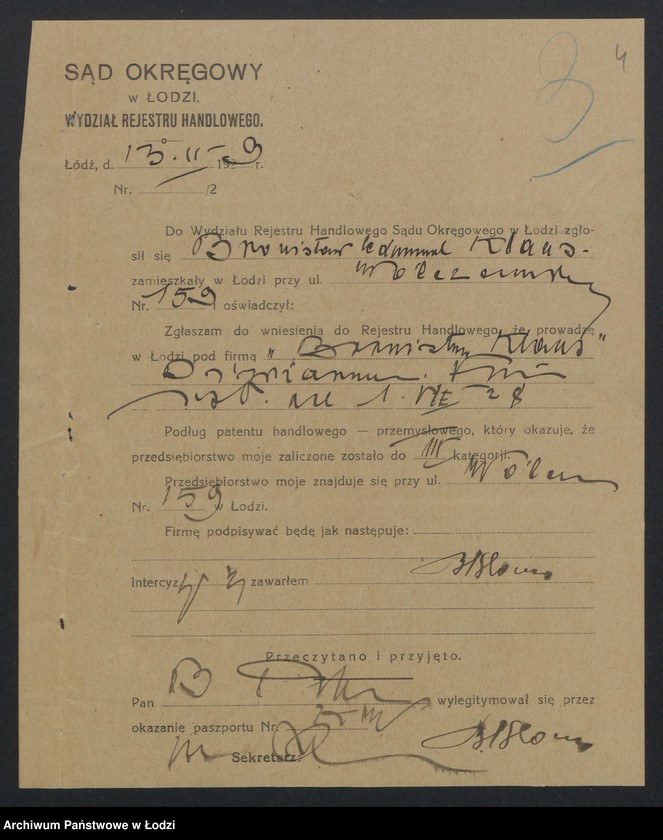 4
SĄD OKRĘGOWY
w ŁODZI.
WYDZIAŁ REJESTRU HANDLOWEGO.
Łódź, d. 13. II 1929 r.
Nr. /2
Do Wydziału Rejestru Handlowego Sądu Okręgowego w Łodzi zgło-
sił się Bronisław Edmund Klaus.
zamieszkały w Łodzi przy ul. Wólczańskiej
Nr. 159 i oświadczył:
Zgłaszam do wniesienia do Rejestru Handlowego, że prowadzę
w Łodzi pod firmą „Bronisław Klaus"
1. VII 28
Podług patentu handlowego — przemysłowego, który okazuję, że
przedsiębiorstwo moje zaliczone zostało do III kategorji.
Przedsiębiorstwo moje znajduje się przy ul. Wólczań
Nr. 159 w Łodzi.
Firmę podpisywać będę jak następuje:
Intercyzy zawarłem
Przeczytano i przyjęto.
Pan B wylegitymował się przez
okazanie paszportu Nr.
Sekretarz:
Archiwum Państwowe w Łodzi